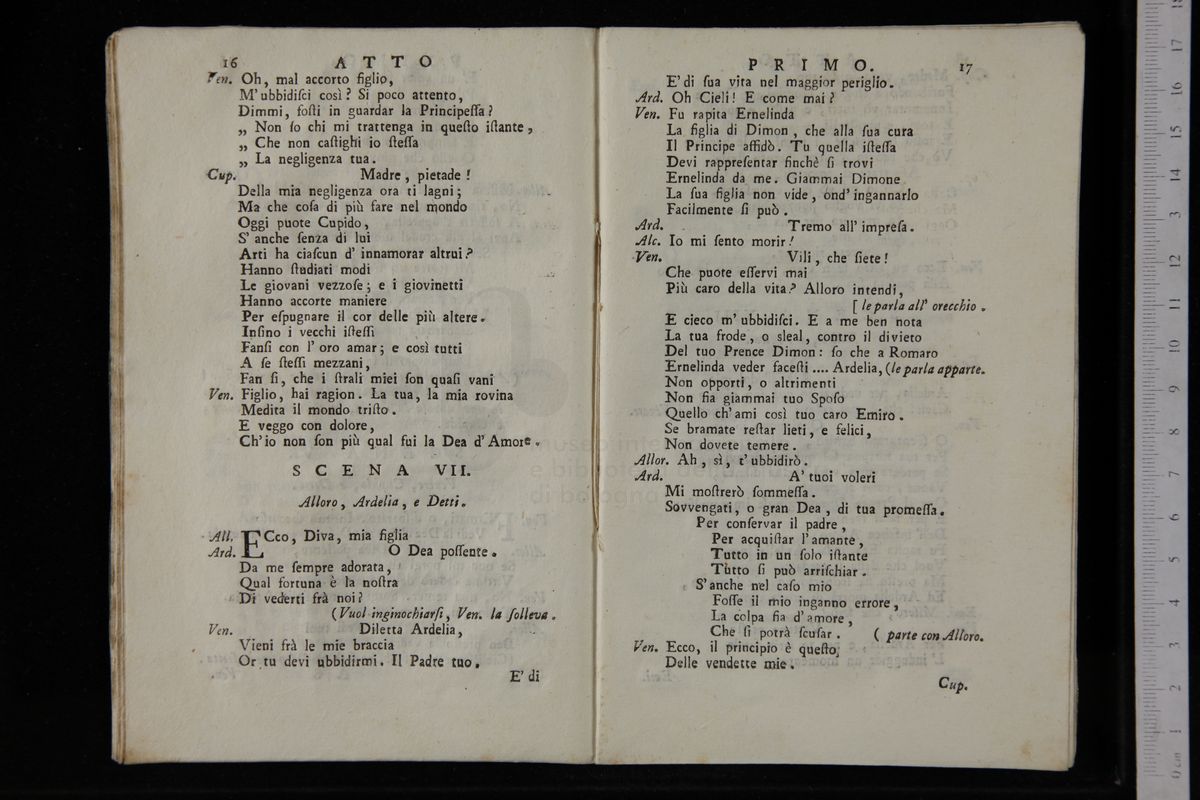 16 ATTO
Ven. Oh, mal accorto figlio,
M'ubbidiſci così? Sì poco attento,
Dimmi, foſti in guardar la Principeſſa?
„ Non ſo chi mi trattenga in queſto iſtante,
„ Che non caſtighi io ſteſſa
„ La negligenza tua.
Cup. Madre, pietade!
Della mia negligenza ora ti lagni;
Ma che coſa di più fare nel mondo
Oggi puote Cupido,
S' anche ſenza di lui
Arti ha ciaſcun d' innamorar altrui?
Hanno ſtudiati modi
Le giovani vezzoſe; e i giovinetti
Hanno accorte maniere
Per eſpugnare il cor delle più altere.
Inſino i vecchi iſteſſi
Fanſi con l' oro amar; e così tutti
A ſe ſteſſi mezzani,
Fan ſi, che i ſtrali miei ſon quaſi vani
Ven. Figlio, hai ragion. La tua, la mia rovina
Medita il mondo triſto.
E veggo con dolore,
Ch'io non ſon più qual fui la Dea d'Amore.
SCENA VII.
Alloro, Ardelia, e Detti.
All. ECco, Diva, mia figlia
Ard. O Dea poſſente.
Da me ſempre adorata,
Qual fortuna è la noſtra
Di vederti frà noi?
(Vuol inginochiarſi, Ven. la ſolleva.
Ven. Diletta Ardelia,
Vieni frà le mie braccia
Or tu devi ubbidirmi. Il Padre tuo,
E' di
PRIMO. 17
E' di ſua vita nel maggior periglio.
Ard. Oh Cieli! E come mai?
Ven. Fu rapita Ernelinda
La figlia di Dimon, che alla ſua cura
Il Principe affidò. Tu quella iſteſſa
Devi rappreſentar finchè ſi trovi
Ernelinda da me. Giammai Dimone
La ſua figlia non vide, ond'ingannarlo
Facilmente ſi può.
Ard. Tremo all' impreſa.
Alc. Io mi ſento morir!
Ven. Vili, che ſiete!
Che puote eſſervi mai
Più caro della vita? Alloro intendi,
[ le parla all' orecchio.
E cieco m' ubbidiſci. E a me ben nota
La tua frode, o sleal, contro il divieto
Del tuo Prence Dimon: ſo che a Romaro
Ernelinda veder faceſti .... Ardelia, (le parla apparte.
Non opporti, o altrimenti
Non fia giammai tuo Spoſo
Quello ch'ami così tuo caro Emiro.
Se bramate reſtar lieti, e felici,
Non dovete temere.
Allor. Ah, sì, t'ubbidirò.
Ard. A' tuoi voleri
Mi moſtrerò ſommeſſa.
Sovvengati, o gran Dea, di tua promeſſa.
Per conſervar il padre,
Per acquiſtar l'amante,
Tutto in un ſolo iſtante
Tutto ſi può arriſchiar.
S'anche nel caſo mio
Foſſe il mio inganno errore,
La colpa fia d'amore,
Che ſi potrà ſcuſar. ( parte con Alloro.
Ven. Ecco, il principio è queſto,
Delle vendette mie.
Cup.